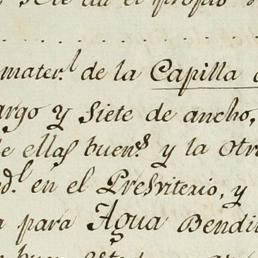 el propio
mater.l de la Capilla
argo y siete de ancho,
e ellas buen.s y la otra
d.l en el Presviterio, y
para Agua Bendi